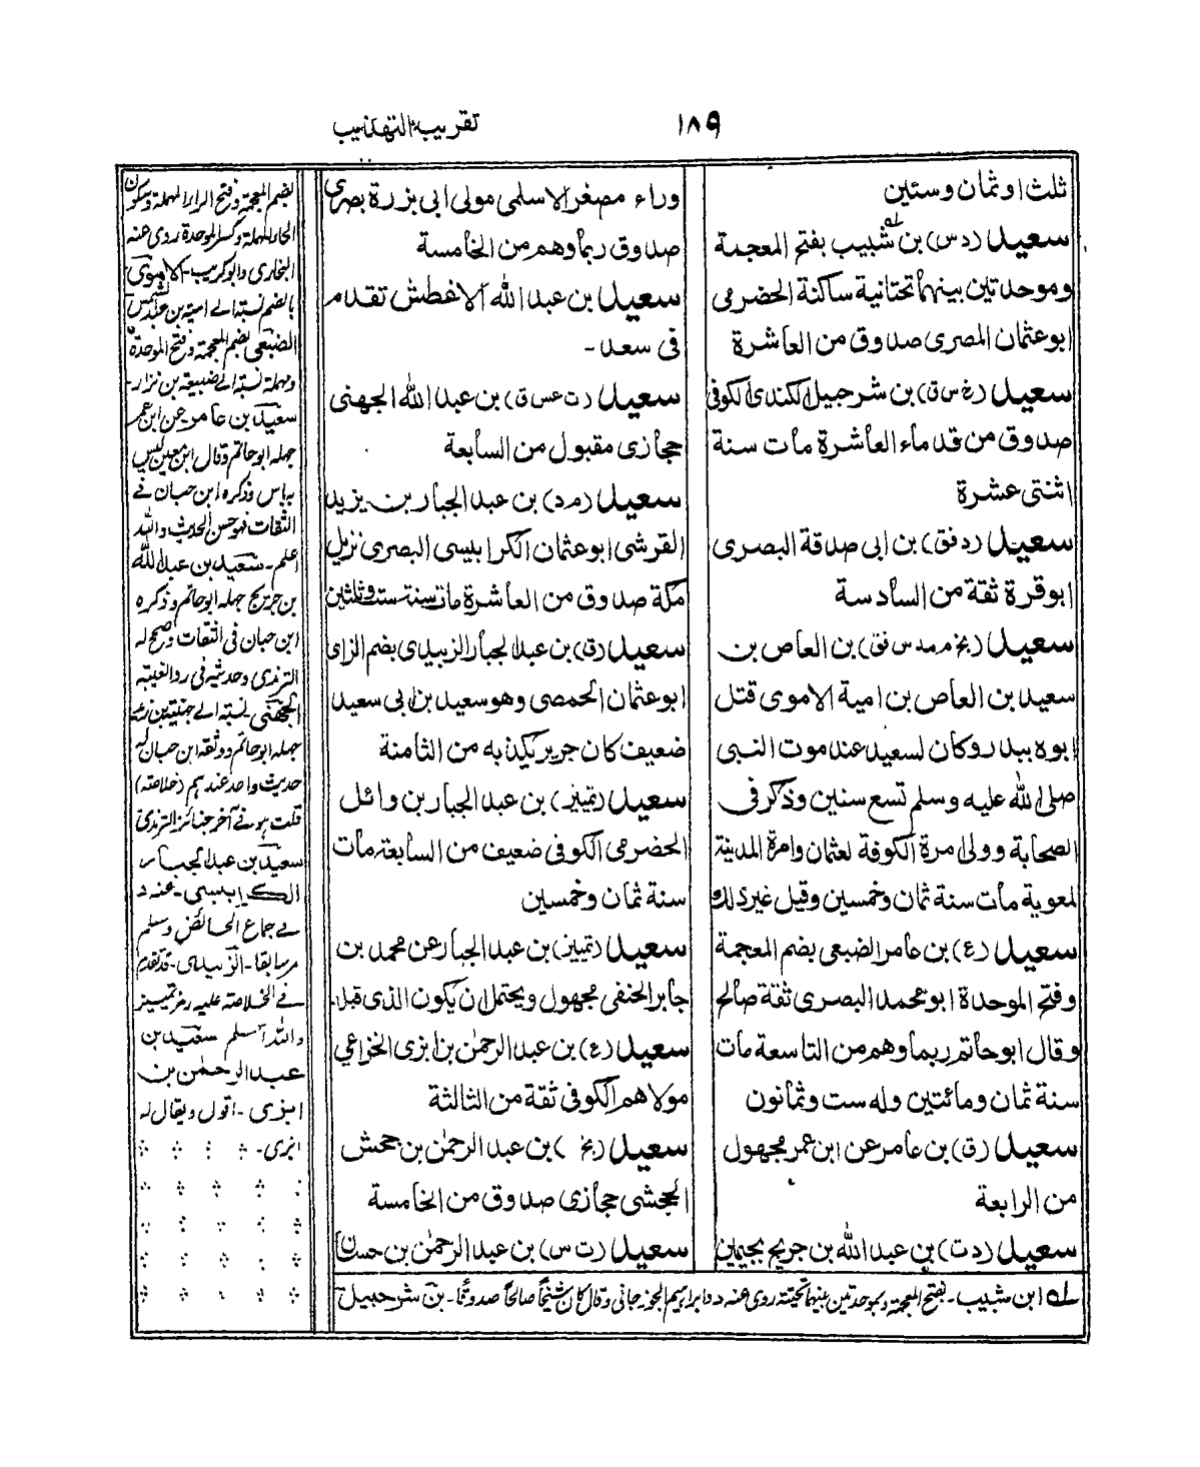 ١٨٩
تقريب التهذيب
ثلث اوثمان وستين
سعيد (دس) بن شبيب بفتح المعجمة
وموحدتين بينهما تحتانية ساكنة الحضرمي
ابوعثمان المصرى صدوق من العاشرة
سعيد (خ س ق) بن شرحبيل الكندى الكوفى
صدوق من قدماء العاشرة مات سنة
اثنتى عشرة
سعيد (دفق) بن ابى صدقة البصرى
ابوقرة ثقة من السادسة
سعيد (بخ م مد س فق) بن العاص بن
سعيد بن العاص بن امية الاموى قتل
ابوه ببدر وكان لسعيد عند موت النبى
صلى الله عليه وسلم تسع سنين وذكر فى
الصحابة وولى امرة الكوفة لعثمان وامرة المدينة
لمعوية مات سنة ثمان وخمسين وقيل غير ذلك
سعيد (ع) بن عامر الضبعى بضم المعجمة
وفتح الموحدة ابو محمد البصرى ثقة صالح
وقال ابوحاتم ربما وهم من التاسعة مات
سنة ثمان ومائتين وله ست وثمانون
سعيد (ق) بن عامر عن ابن عمر مجهول
من الرابعة
سعيد (دت) بن عبد الله بن جريج بجيمين
وراء مصغر الاسلمى مولى ابى برزة بصرى
صدوق ربما وهم من الخامسة
سعيد بن عبد الله الاغطش تقدم
فى سعد -
سعيد (ت عس ق) بن عبد الله الجهنى
حجازى مقبول من السابعة
سعيد (مد) بن عبد الجبار بن يزيد
القرشى ابوعثمان الكرابيسى البصرى نزيل
مكة صدوق من العاشرة مات سنة ست وثلثين
سعيد (ق) بن عبد الجبار الزبيدى بضم الزاى
ابوعثمان الحمصى وهو سعيد بن ابى سعيد
ضعيف كان جرير يكذبه من الثامنة
سعيد (تمييز) بن عبد الجبار بن وائل
الحضرمى الكوفى ضعيف من السابعة مات
سنة ثمان وخمسين
سعيد (تمييز) بن عبد الجبار عن محمد بن
جابر الحنفى مجهول ويحتمل ان يكون الذى قبله
سعيد (ع) بن عبد الرحمٰن بن ابزى الخزاعي
مولاهم الكوفى ثقة من الثالثة
سعيد (بخ) بن عبد الرحمٰن بن جحش
الجحشى حجازى صدوق من الخامسة
سعيد (ت س) بن عبد الرحمٰن بن حسان
بضم المعجمة وفتح الراء المهملة وسكون
الحاء المهملة وكسر الموحدة روى عنه
البخارى وابوكريب - الاموى
بالضم نسبة الى امية بن عبد شمس
الضبعى بضم المعجمة وفتح الموحدة
ومهملة نسبة الى ضبيعة بن نزار -
سعيد بن عامر عن ابن عمر
جهله ابوحاتم وقال ابن معين ليس
به باس وذكره ابن حبان فى
الثقات فهو حسن الحديث والله
اعلم - سعيد بن عبد الله
بن جريج جهله ابوحاتم وذكره
ابن حبان فى الثقات وصحح له
الترمذى وحديثه فى رد الغيبة
الجهنى نسبة الى جهينة بن زيد
جهله ابوحاتم ووثقه ابن حبان له
حديث واحد عندهم (خلاصه)
قلت هو فى آخر جنائز الترمذى
سعيد بن عبد الجبار
الكرابيسى - عند د
فى جماع الحائض ومسلم
مر سابقا - الزبيدى - قد تقدم
فى الخلاصة عليه رمز تمييز
والله اعلم سعيد بن
عبد الرحمٰن بن
ابزى - اقول ويقال له
ابرى -
له ابن شبيب - بفتح المعجمة وبموحدتين بينهما تحتية روى عنه د وابراهيم الجوزجانى وقال كان شيخًا صالحًا صدوقًا - بن شرحبيل